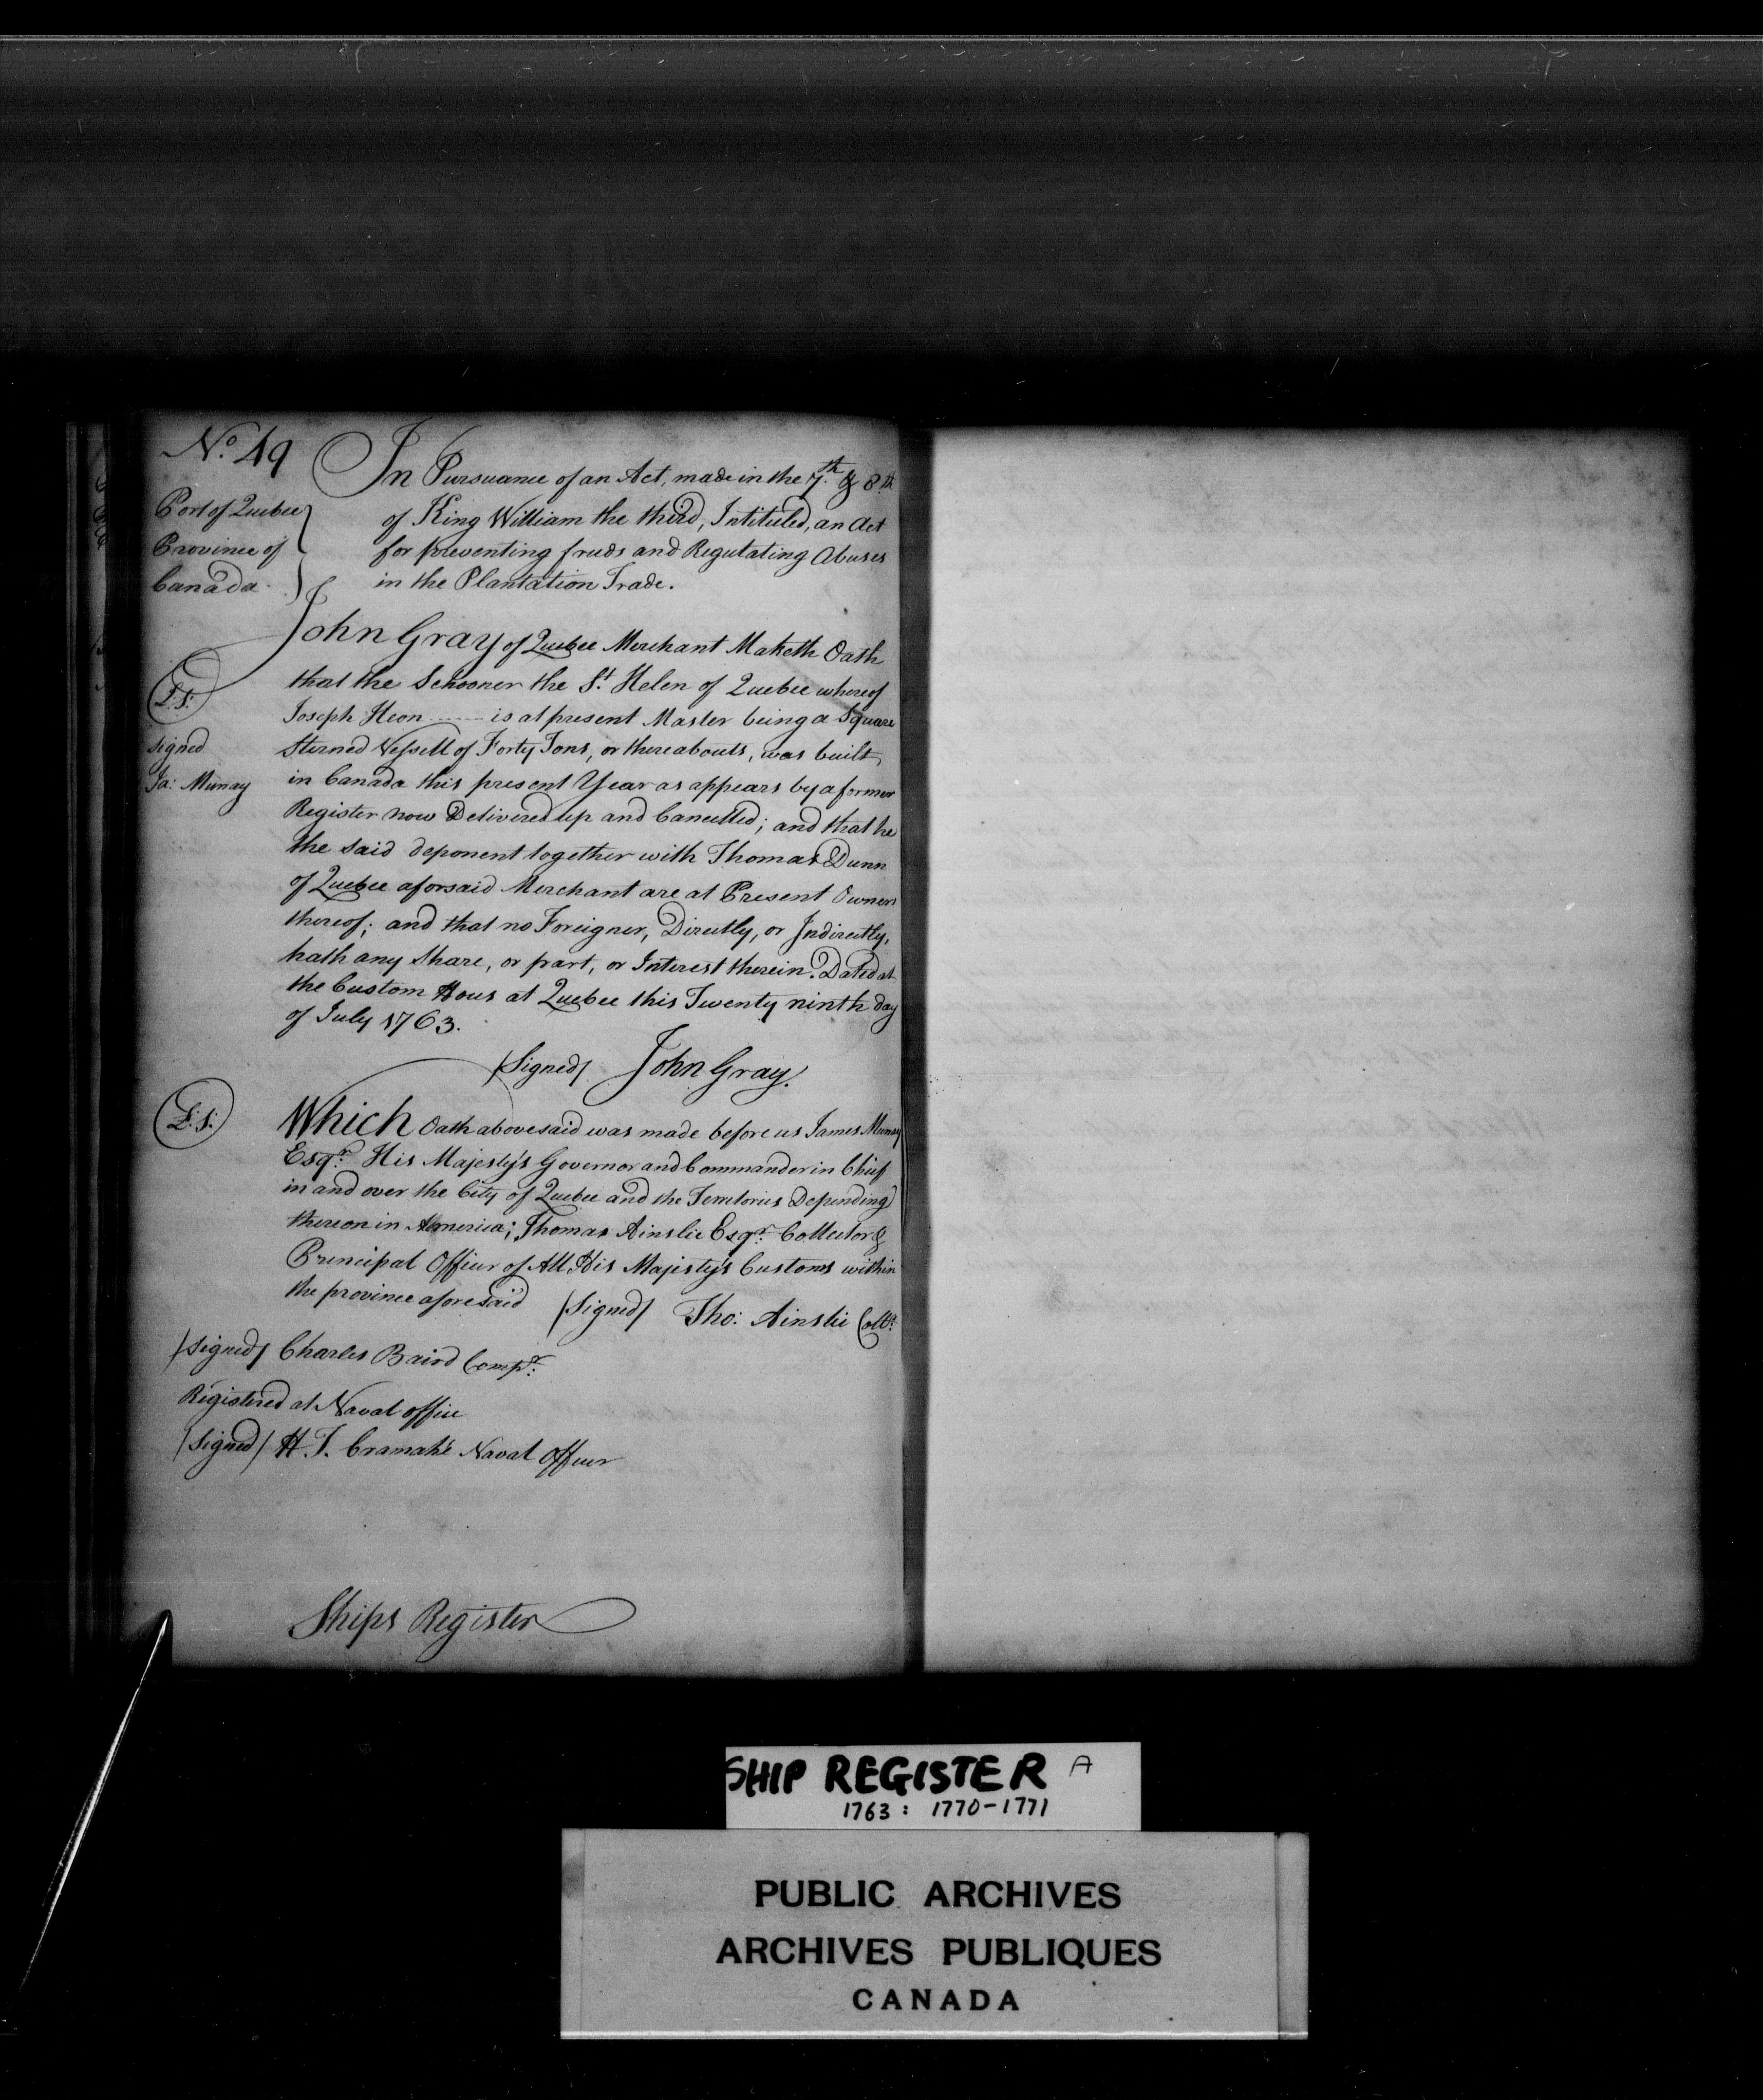 No. 49
In Pursuance of an Act, made in the 7th & 8th
Port of Quebec
Province of
Canada
of King William the third, Intituled, an Act
for preventing fruds and Regulating Abuses
in the Plantation Trade.
John Gray of Quebec Merchant Maketh Oath
that the Schooner the St. Helen of Quebec whereof
L:S:
Joseph Heon ...... is at present Master being a Square
signed
Ja: Murray
Sterned Vessell of Forty Tons, or thereabouts, was built
in Canada this present Year as appears by a former
Register now Delivered up and Cancelled; and that he
the said deponent together with Thomas Dunn
of Quebec aforsaid Merchant are at Present Owners
thereof; and that no Foreigner, Directly, or Indirectly,
hath any Share, or part, or Interest therein. Dated at
the Custom Hous at Quebec this Twenty ninth day
of July 1763.
/Signed/ John Gray.
L.S.
Which Oath abovesaid was made before us James Murray
Esqr. His Majesty's Governor and Commander in Chief
in and over the City of Quebec and the Territories Depending
thereon in America; Thomas Ainslie Esqr. Collector &
Principal Officer of All His Majesty's Customs within
the province aforesaid /Signed/ Tho: Ainslie Collr.
/Signed/ Charles Baird Compr.
Registered at Naval office
/Signed/ H. T. Cramahé Naval Officer
Ships Register
SHIP REGISTER A
1763: 1770-1771
PUBLIC ARCHIVES
ARCHIVES PUBLIQUES
CANADA